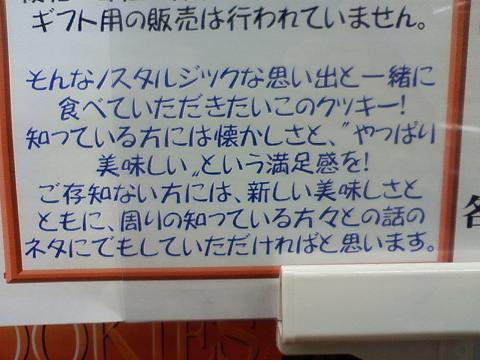 ギフト用の販売は行われていません。
そんなノスタルジックな思い出と一緒に
食べていただきたいこのクッキー!
知っている方には懐かしさと、〝やっぱり
美味しい〟という満足感を!
ご存知ない方には、新しい美味しさと
ともに、周りの知っている方々との話の
ネタにでもしていただければと思います。
OOKIES